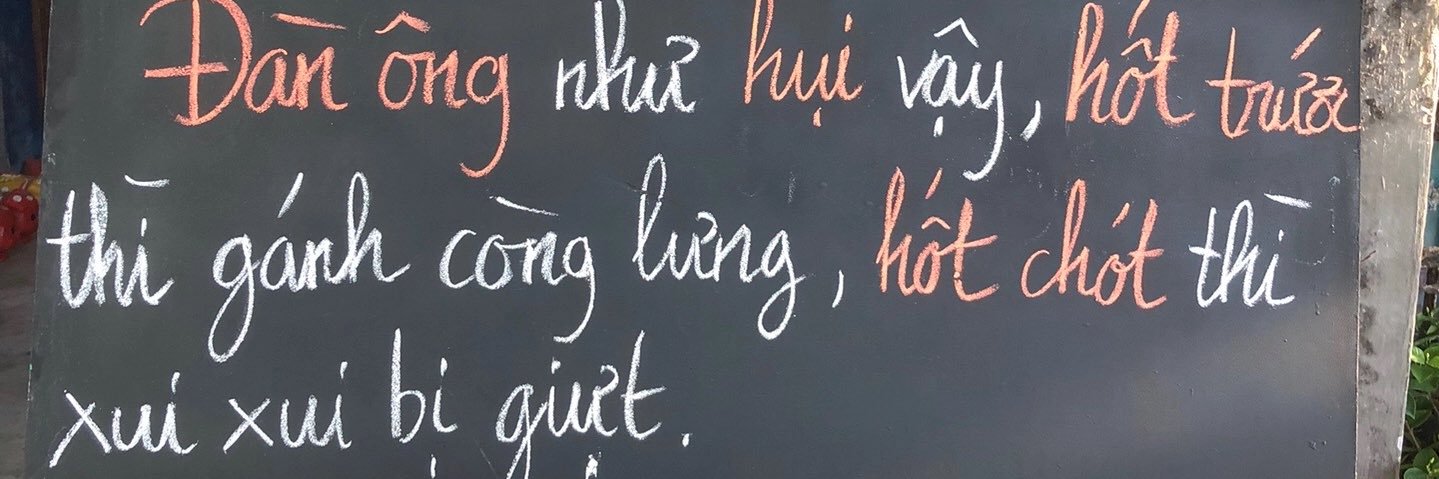 Đàn ông như hụi vậy, hốt trước
thì gánh còng lưng, hốt chót thì
xui xui bị giựt.